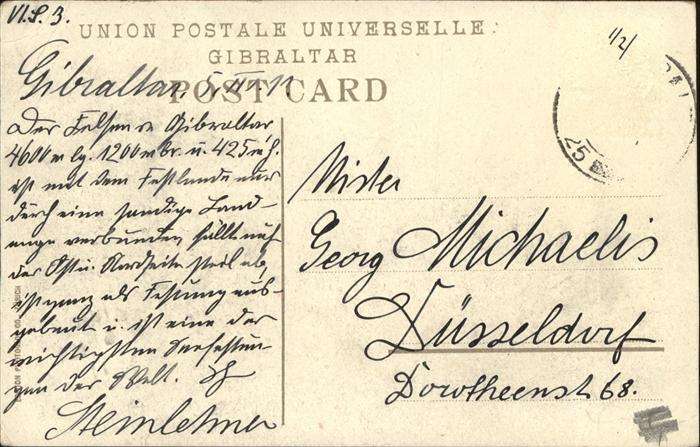 VI.S. 3.
1/2/
UNION POSTALE UNIVERSELLE
GIBRALTAR
POST CARD
Gibraltar, 5. 12
Der Felsen v. Gibraltar
4600 m lg. 1200 m br. u. 425 m h.
ist mit dem Festlande nur
durch eine sandige Land-
enge verbunden fällt nach
der Ost u. Nordseite steil ab
ist ganz als Festung aus-
gebaut u. ist eine der
wichtigsten Seefestun-
gen der Welt.
Steinlehner
Mister
Georg Michaelis
Düsseldorf
Dorotheenst 68.
25